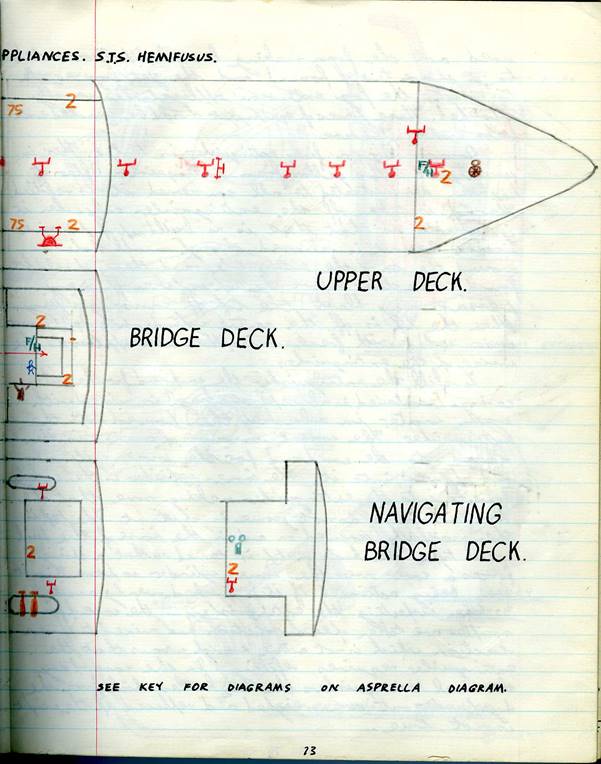 PPLIANCES. S.T.S. HEMIFUSUS.
2
75
F/H
2
75 2
2
UPPER DECK.
2
BRIDGE DECK.
F/H
2
NAVIGATING
BRIDGE DECK.
2
2
SEE KEY FOR DIAGRAMS ON ASPRELLA DIAGRAM.